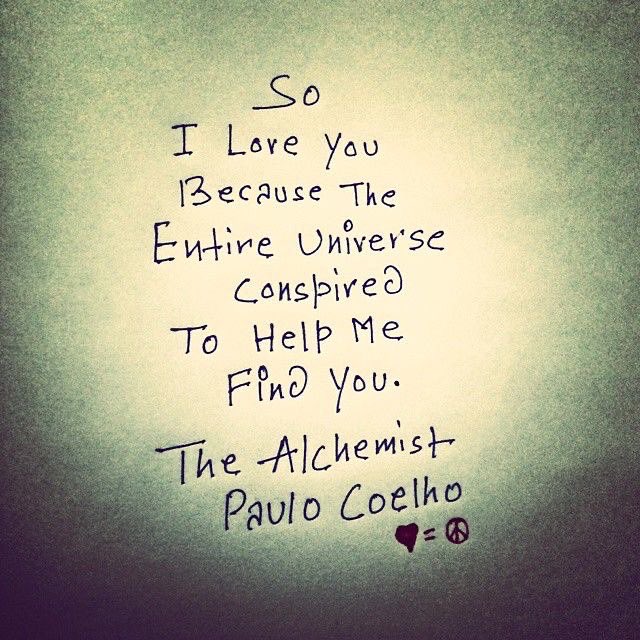 So
I Love You
Because The
Entire Universe
Conspired
To Help Me
Find You.
The Alchemist
Paulo Coelho
♥=☮